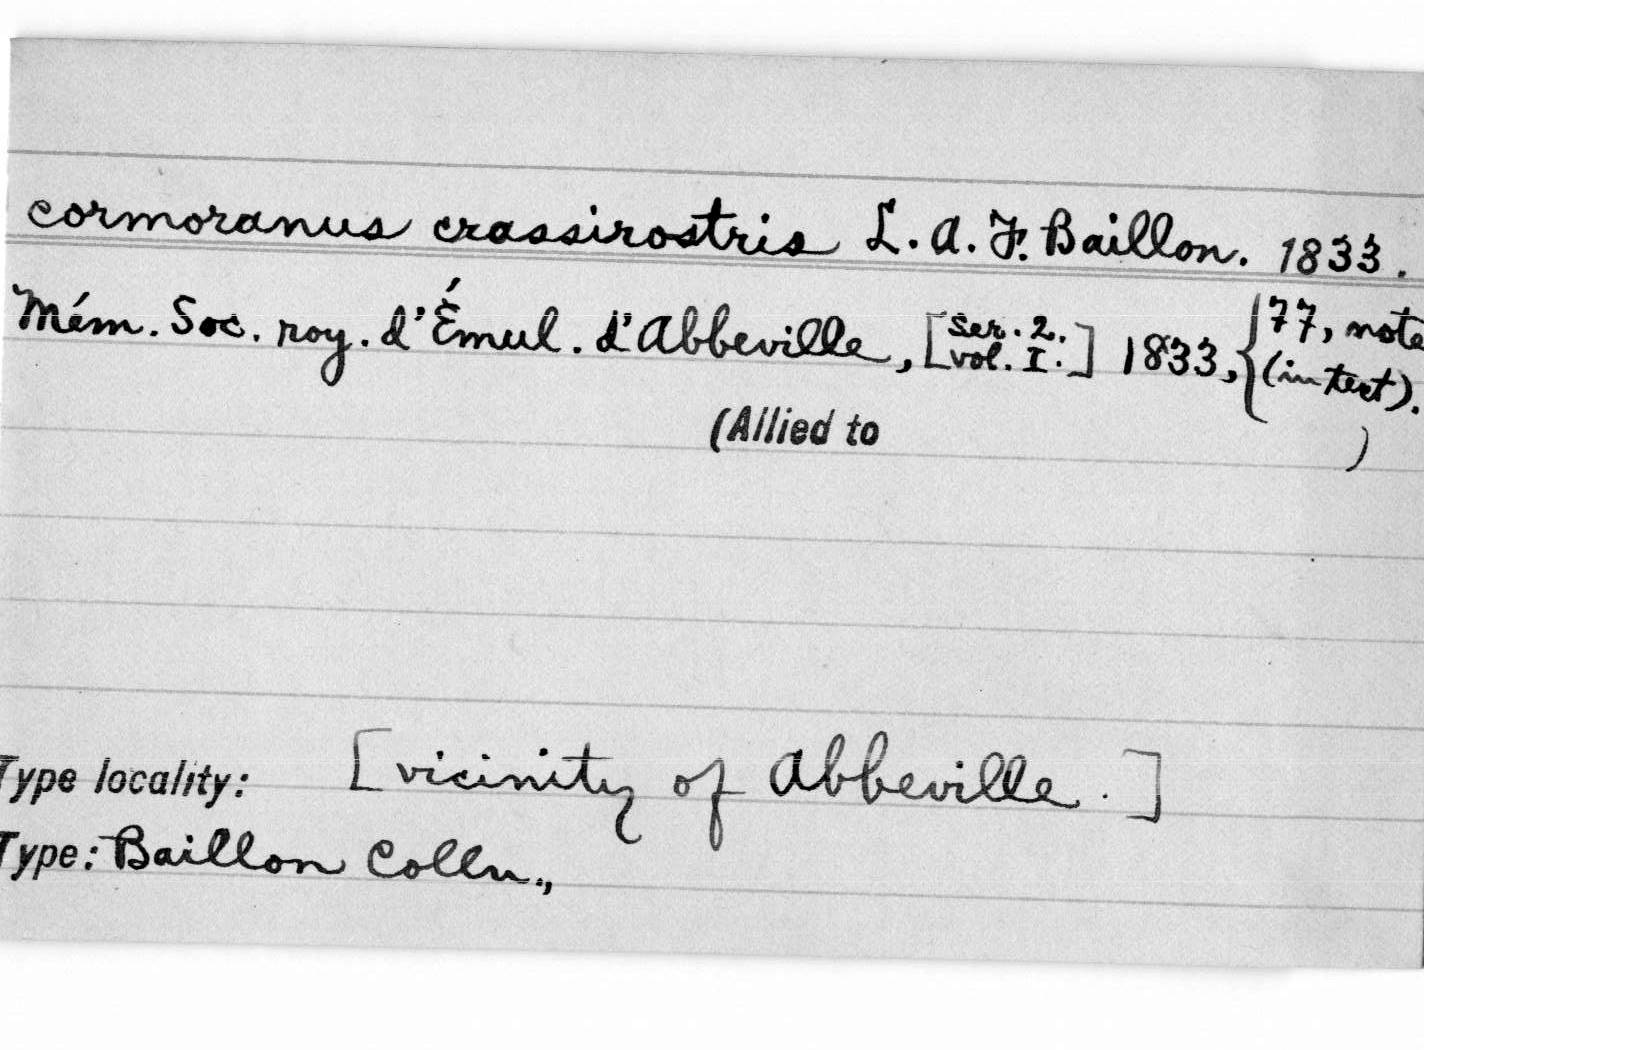 cormoranus crassirostris L. A. F. Baillon. 1833.
Mém. Soc. roy. d'Émul. d'Abbeville, [ser. 2. vol. I.] 1833, {77, note (in text).
(Allied to )
Type locality: [vicinity of Abbeville.]
Type: Baillon Colln.,